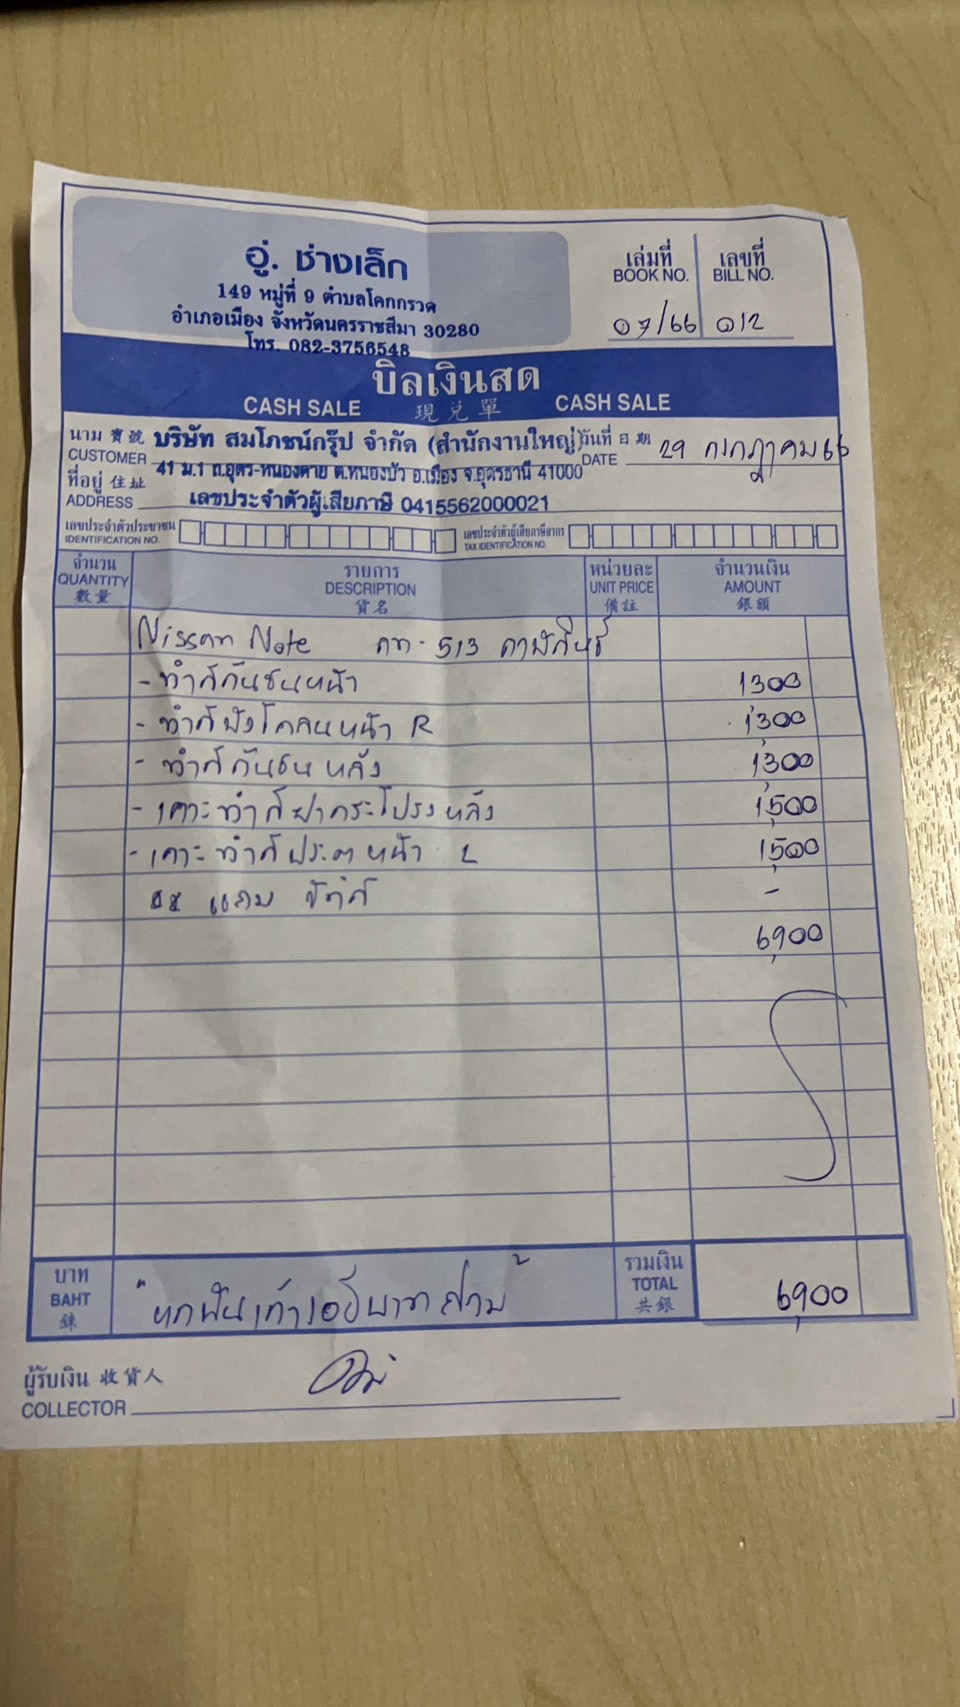 อู่. ช่างเล็ก
149 หมู่ที่ 9 ตำบลโคกกรวด
อำเภอเมือง จังหวัดนครราชสีมา 30280
โทร. 082-3756548
เล่มที่ เลขที่
BOOK NO. BILL NO.
07/66 012
บิลเงินสด
CASH SALE 現兑單 CASH SALE
นาม 寶號 บริษัท สมโภชน์กรุ๊ป จำกัด (สำนักงานใหญ่) วันที่ 日期
CUSTOMER 41 ม.1 ถ.อุดร-หนองคาย ต.หนองบัว อ.เมือง จ.อุดรธานี 41000 DATE 29 กรกฎาคม 66
ที่อยู่ 住址
ADDRESS เลขประจำตัวผู้เสียภาษี 0415562000021
เลขประจำตัวประชาชน เลขประจำตัวผู้เสียภาษีอากร
IDENTIFICATION NO. TAX IDENTIFICATION NO.
จำนวน รายการ หน่วยละ จำนวนเงิน
QUANTITY DESCRIPTION UNIT PRICE AMOUNT
數量 貨名 備註 銀額
Nissan Note กท - 513 กาฬสินธุ์
- ทำสีกันชนหน้า 1300
- ทำสีบังโคลนหน้า R 1,300
- ทำสีกันชนหลัง 1,300
- เคาะทำสีฝากระโปรงหลัง 1,500
- เคาะทำสีประตูหน้า L 1,500
** แถม ขัดสี -
6,900
บาท รวมเงิน
BAHT "หกพันเก้าร้อยบาทถ้วน" TOTAL 6,900
銖 共銀
ผู้รับเงิน 收貨人
COLLECTOR